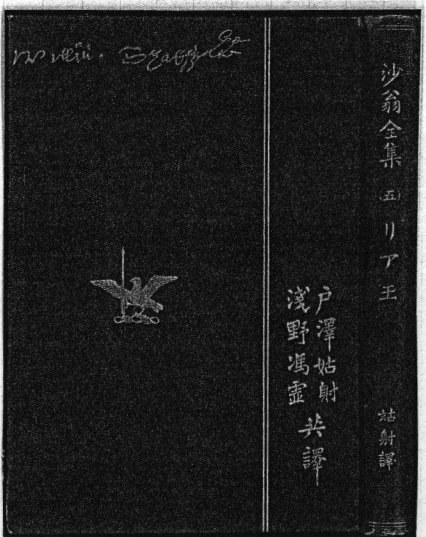 沙翁全集 (五) リア王
姑射譯
戸澤姑射
淺野馮虚
共譯